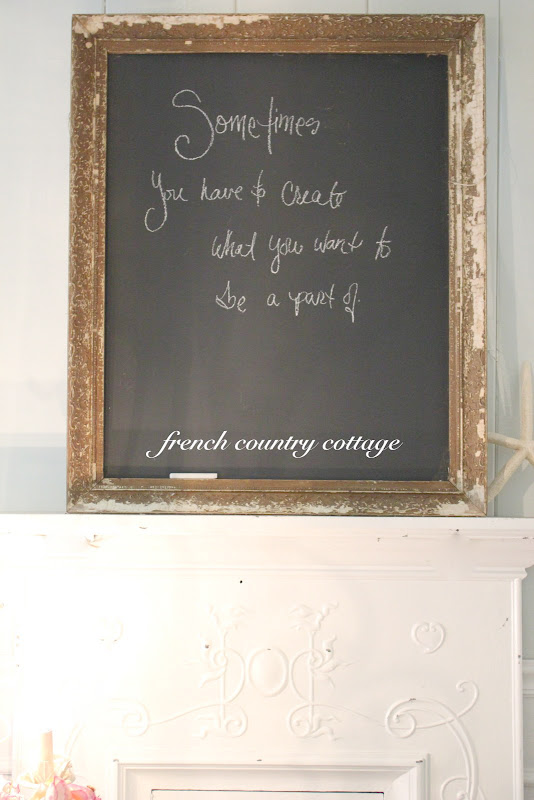 Sometimes
You have to create
what you want to
be a part of.
french country cottage